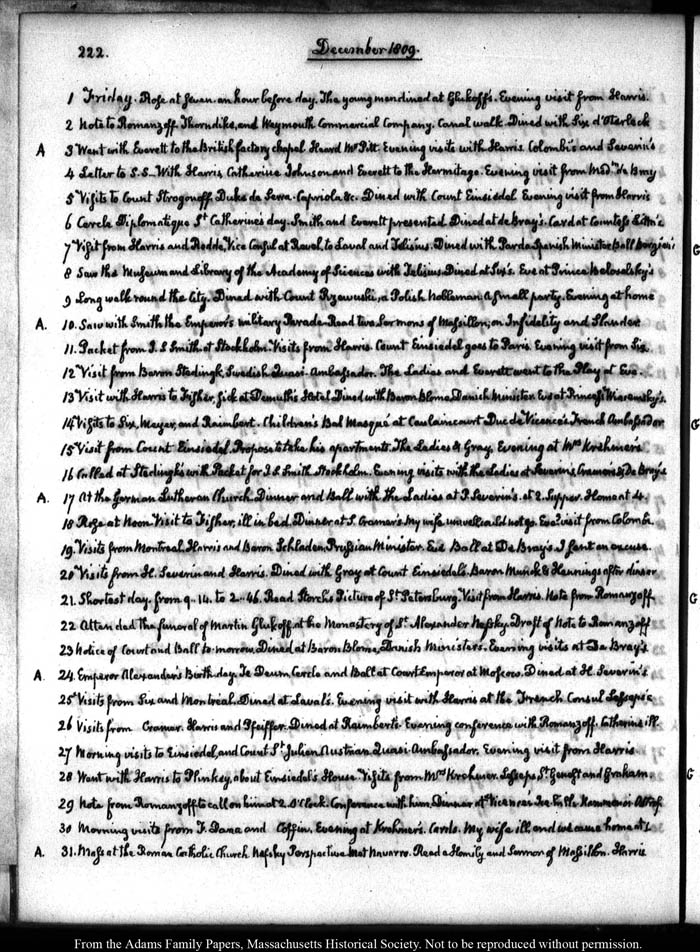 222.
December 1809.
1 Friday. Rose at seven. an hour before day. The young men dined at Glukoff's. Evening visit from Harris.
2 Note to Romanzoff. Thorndike, and Weymouth Commercial Company. Canal walk. Dined with Six d'Oterbeck
A 3 Went with Everett to the British factory chapel. Heard Mr Pitt. Evening visits with Harris. Colombi's and Severin's
4 Letter to S. S. With Harris, Catherine Johnson and Everett to the Hermitage. Evening visit from Mad. de Bray
5 Visits to Count Strogonoff. Duke de Serra. Capriola &c. Dined with Count Einsiedel Evening visit from Harris
6 Cercle Diplomatique St Catherine's day. Smith and Everett presented. Dined at de Bray's. Card at Countess
7 Visit from Harris and Rodde, Vice Consul at Reval, to Laval and Jelisius. Dined with Pardo Spanish Minister Ball G
8 Saw the Museum and Library of the Academy of Sciences with Jelisius. Dined at Six's. Eve at Prince Beloselsky's
9 Long walk round the City. Dined with Count Rzewuski, a Polish Nobleman. A small party. Evening at home
A. 10. Saw with Smith the Emperor's military Parade. Read two Sermons of Massillon, on Infidelity and Slander
11. Packet from J. S. Smith at Stockholm. Visits from Harris. Count Einsiedel goes to Paris. Evening visit from Six.
12 Visit from Baron Stedingk, Swedish Quasi-Ambassador. The Ladies and Everett went to the Play at Eve.
13 Visit with Harris to Fisher, sick at Demuth's Hotel. Dined with Baron Blome, Danish Minister. Eve at Princess Wiazemsky's.
14 Visits to Six, Meyer, and Raimbert. Children's Bal Masqué at Caulaincourt Duc de Vicence's French Ambassador G
15 Visit from Count Einsiedel. Propose to take his apartments. The Ladies & Gray, Evening at Mrs Krehmer's
16 Called at Stedingk's with Packet for J. S. Smith Stockholm. Evening visits with the Ladies at Severins, Cramers & De Bray's
A. 17 At the German Lutheran Church. Dinner and Ball with the Ladies at P. Severin's. at 2. Supper. Home at 4.
18 Rose at Noon. Visit to Fisher, ill in bed. Dinner at S. Cramer's. My wife unwell could not go. Eve? visit from Colombi.
19. Visits from Montreal, Harris and Baron Schladen, Prussian Minister. Eve Ball at De Bray's. I sent an excuse.
20 Visits from H. Severin and Harris. Dined with Gray at Count Einsiedel's. Baron Munck & Hennings after dinner
21. Shortest day. from 9..14. to 2..46. Read Storch's Picture of St Petersburg. Visit from Harris. Note from Romanzoff G
22 Attended the funeral of Martin Glukoff, at the Monastery of St. Alexander Nefsky. Draft of Note to Romanzoff
23 Notice of Court and Ball to-morrow. Dined at Baron Blome, Danish Ministers. Evening visits at De Bray's.
A. 24. Emperor Alexander's Birth day. Te Deum, Cercle and Ball at Court Emperor at Moscow. Dined at H. Severin's
25 Visits from Six and Montreal. Dined at Laval's. Evening visit with Harris at the French Consul Lesseps's
26 Visits from Cramer. Harris and Pfeiffer. Dined at Raimbert's. Evening conference with Romanzoff. Catherine ill.
27 Morning visits to Einsiedel, and Count St. Julien Austrian Quasi-Ambassador. Evening visit from Harris
28 Went with Harris to Plinksy, about Einsiedel's House. Visits from Mrs Krehmer. Lesseps St. Genest and Graham. G
29 Note from Romanzoff to call on him at 2. O'Clock. Conference with him. Dinner at Vicence's Ice hills
30 Morning visits from F. Dana and Coffin. Evening at Krehmer's. Cards. My wife ill, and we came home at 1
A. 31. Mass at the Roman Catholic Church Nefsky Perspective. Met Navarro. Read a Homily and Sermon of Massillon. Harris
From the Adams Family Papers, Massachusetts Historical Society. Not to be reproduced without permission.